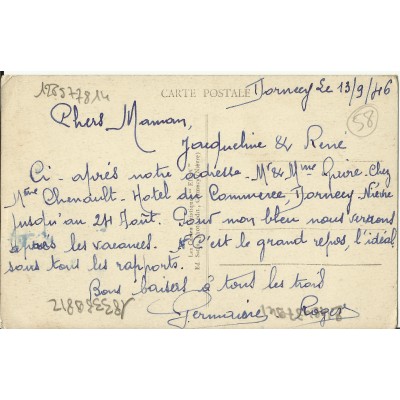 18577814
CARTE POSTALE
Dornecy Le 13/9/46
58
Chers Maman,
Jacqueline & René
Ci-après notre adresse. Mr & Mme Guire. Chez
Mme Chenault. Hotel du Commerce, Dornecy. Nièvre
jusqu'au 24 Août. Pour mon bleu nous verrons
après les vacances. C'est le grand repos, l'idéal
sous tous les rapports.
Bons baisers à tous les trois
Germaine Roger